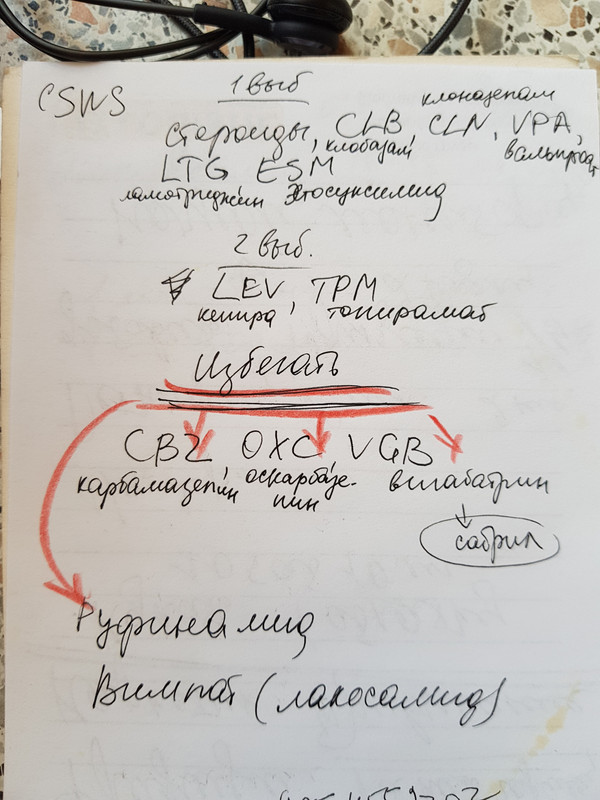 CSWS
1 выб
клоназепам
стероиды, CLB, CLN, VPA,
клобазам
вальпроат
LTG ESM
ламотриджин этосуксимид
2 выб.
LEV, TPM
кеппра топирамат
Избегать
CBZ, OXC, VGB
карбамазепин оскарбазе-
пин
вигабатрин
сабрил
Руфинамид
Вимпат (лакосамид)